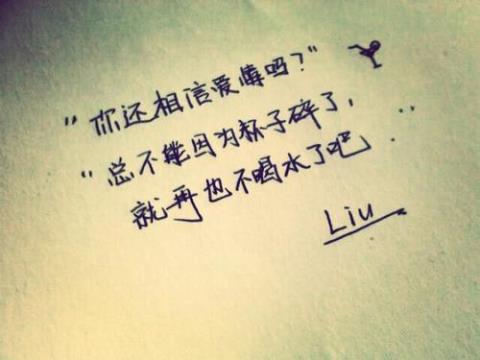 “你还相信爱情吗？”
“总不能因为杯子碎了，
就再也不喝水了吧.”
Liu